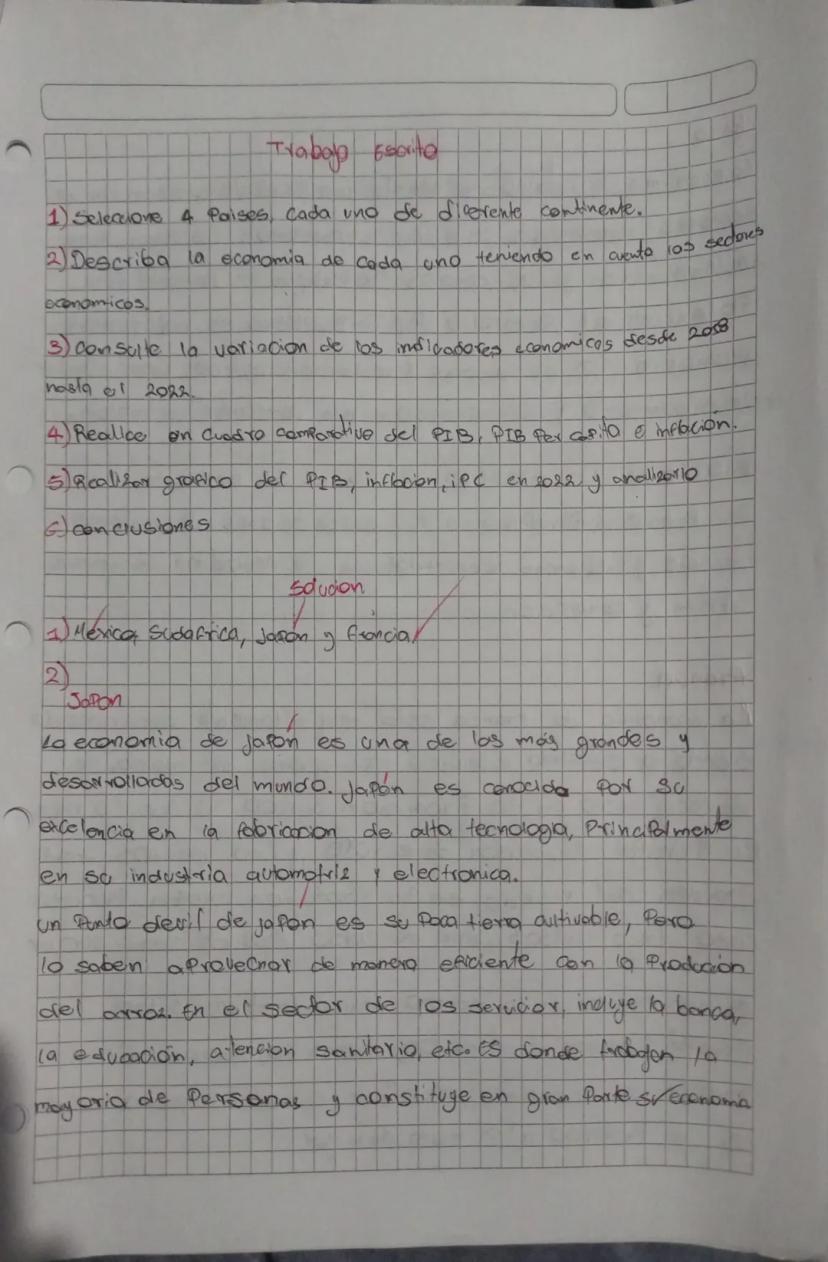 Trabajo Escrito
1) Seleccione 4 Paises, Cada uno de diferente continente.
2) Describa la economia de cada uno teniendo en cuenta los sectores
economicos.
3) Consulte la variacion de los indicadores economicos desde 2018
hasta el 2022.
4) Realice en cuadro comparativo del PIB, PIB Per capita e inflación.
5) Realizar grafico del PIB, inflacion, IPC en 2022 y analizarlo
6) conclusiones
Solucion
1) México, Sudafrica, Japón y francia
2)
Japon
La economia de Japón es una de las más grandes y
desarrolladas del mundo. Japón es conocida por su
excelencia en la fabricacion de alta tecnologia, Principalmente
en su industria automotriz y electronica.
un Punto devil de japón es su Poca tierra cultivable, Pero
lo saben aprovechar de manera eficiente con la Producion
del arroz. En el sector de los servicior, incluye la banca,
la educación, atencion sanitaria, etc. ES donde trabajan la
mayoria de Personas y constituye en gran Parte su economa